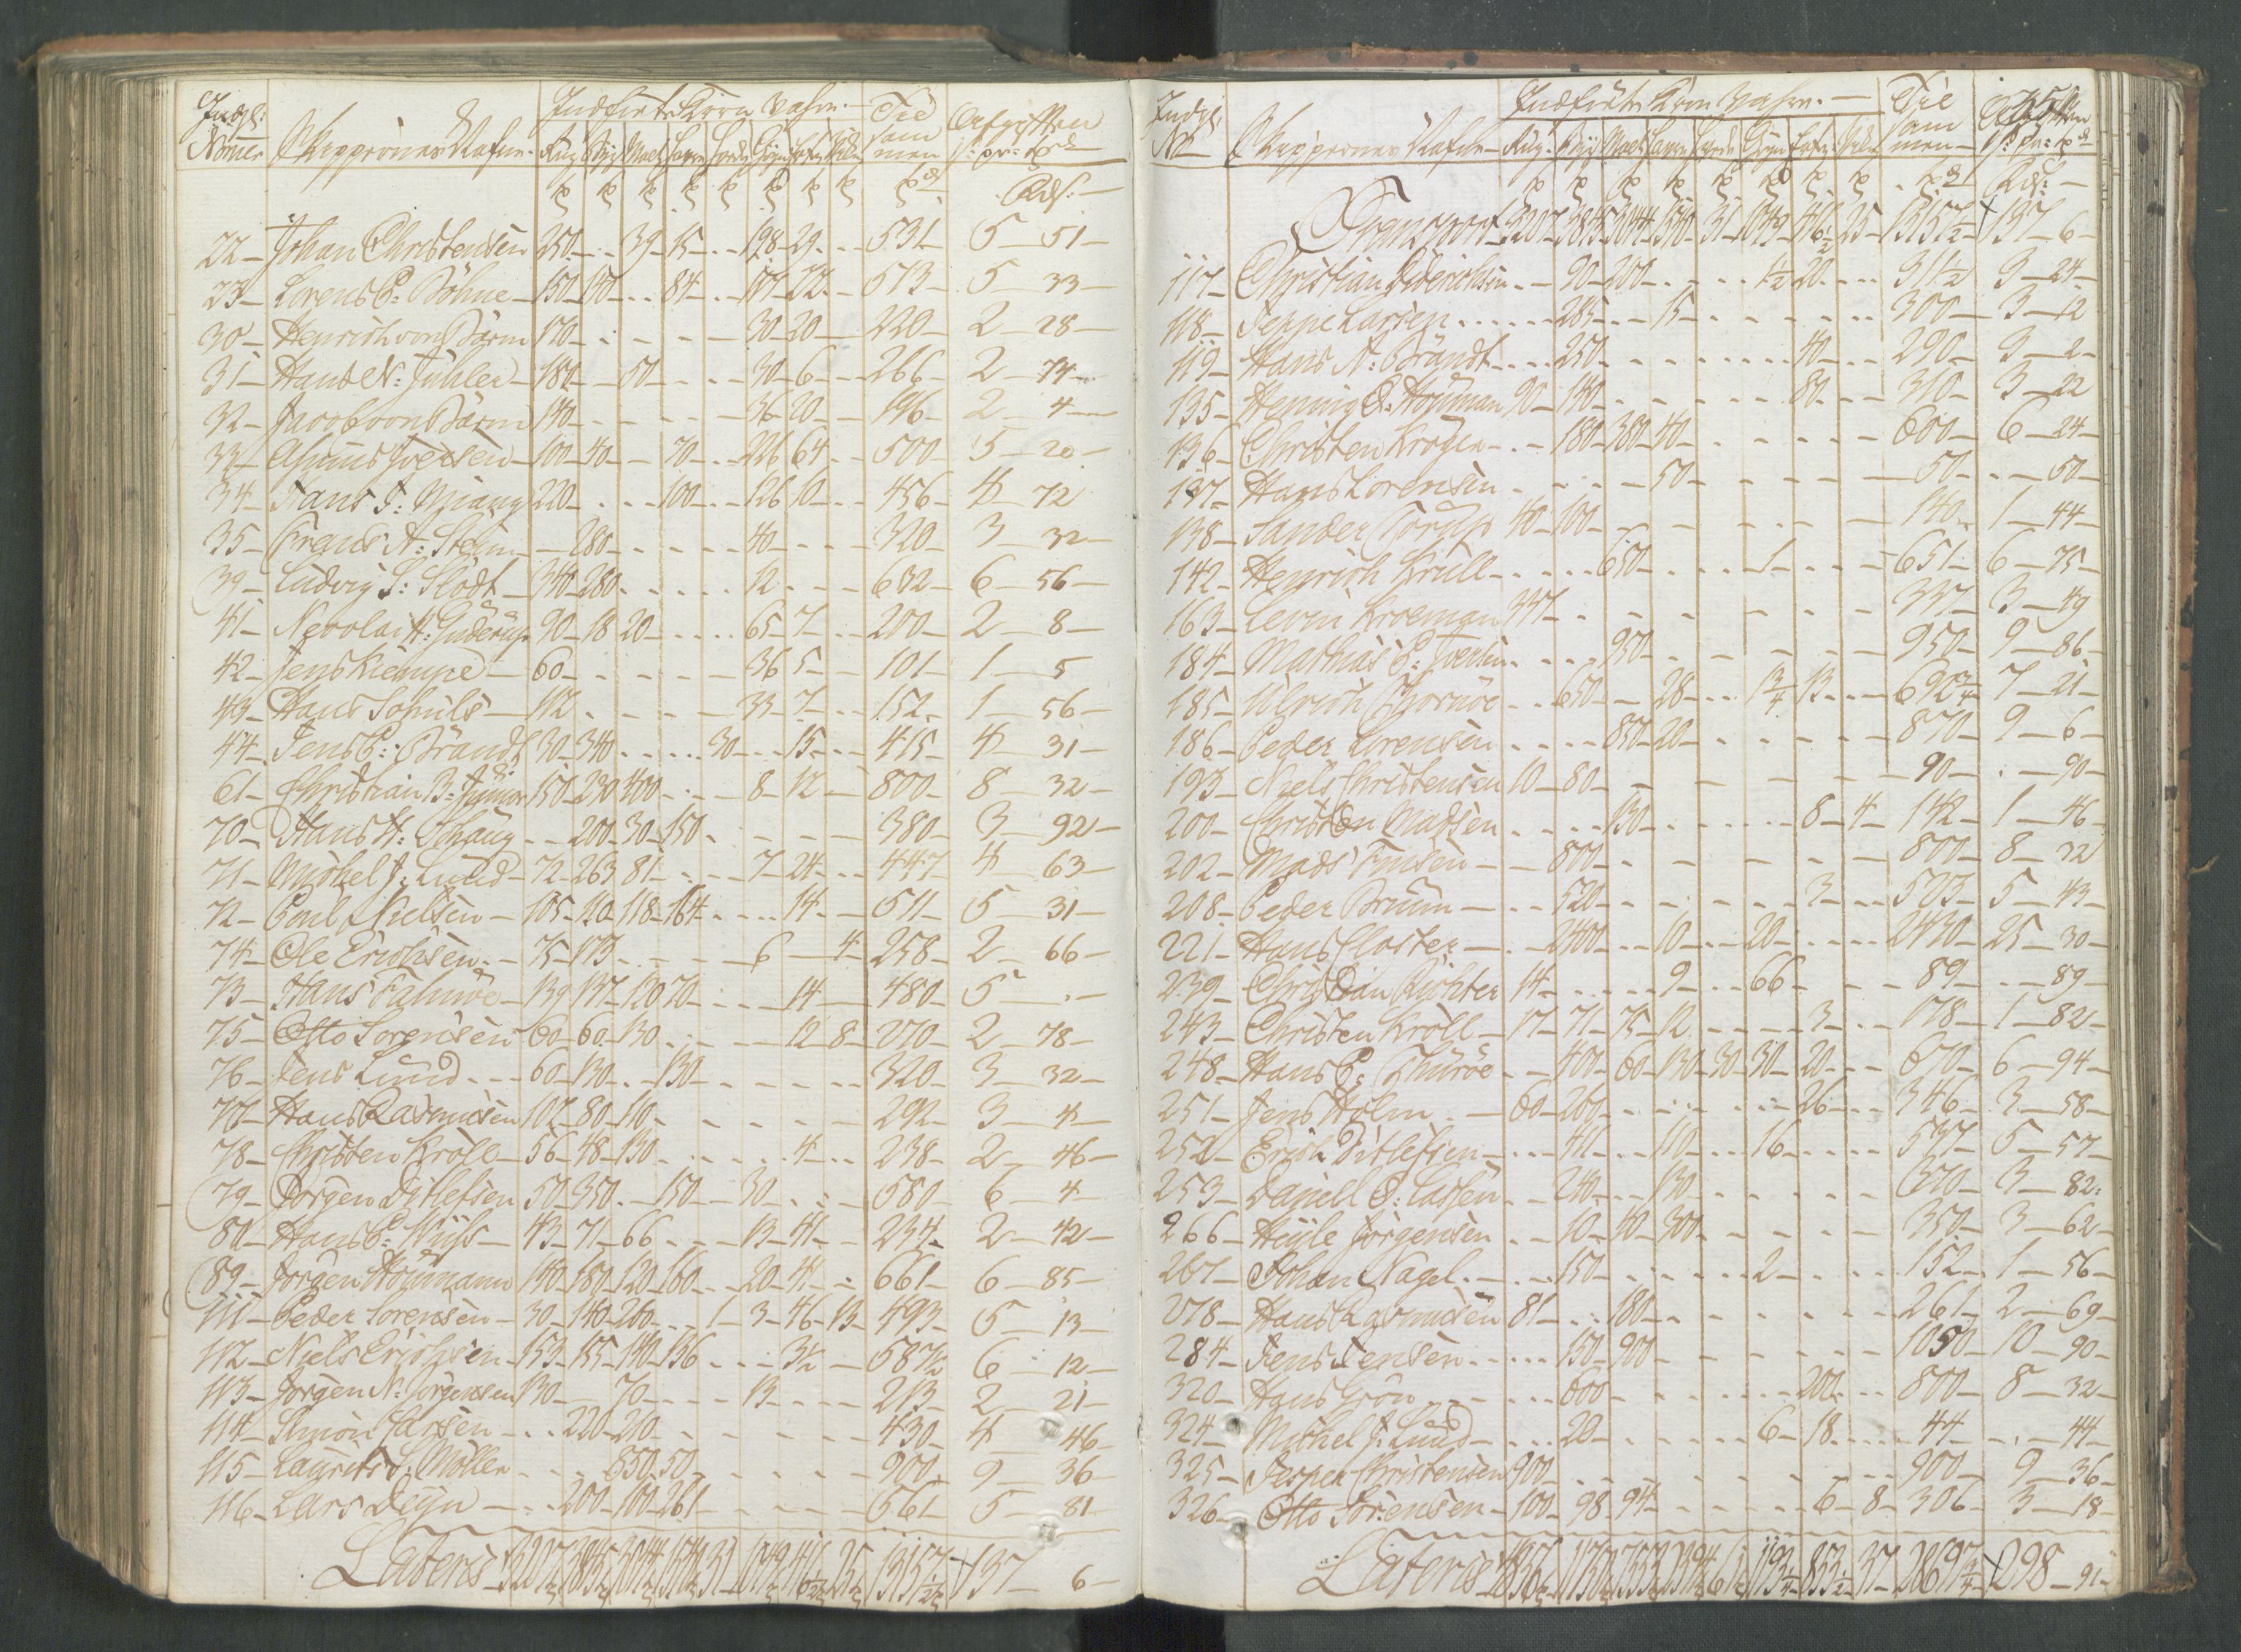 Indførte Korn Vahre. Til sam men Afgiften
Nomer Skippernes Nafne Rug Byg Malt
22 Johan Christensen 250 39 15 198 29 531 5 51
23 Lorens P: Böhne 150 140 84 117 22 513 5 33
30 Henrich von Darm 170 30 20 220 2 28
31 Hans N: Jühler 180 50 30 6 266 2 74
32 Jacob von Darm 140 36 20 196 2 4
33 Asmus Iversen 100 40 70 226 64 500 5 20
34 Hans J: 220 100 126 10 456 4 72
35 280 40 320 3 32
39 Ludvig S: Slodt 340 280 12 632 6 56
41 Nicolai H: Guderup 90 18 20 65 7 200 2 8
42 Jens Kiempe 60 36 5 101 1 5
43 Hans Schuls 112 33 7 152 1 56
44 Jens P: Brandt 30 340 30 15 415 4 31
61 Christian B: Junior 150 230 400 8 12 800 8 32
70 Hans H: Schaug 200 30 150 380 3 92
71 Michel J: Lund 72 263 81 7 24 447 4 63
72 Poul Nielsen 105 110 118 164 14 511 5 31
74 Ole Erichsen 75 173 6 4 258 2 66
73 Hans Falmöe 139 137 120 70 14 480 5
75 Otto Sorensen 60 60 130 12 8 270 2 78
76 Jens Lund 60 130 130 320 3 32
77 Hans Rasmusen 102 80 110 292 3 4
78 Christen Kroll 56 48 130 4 238 2 46
79 Jörgen Ditlefsen 50 350 150 30 580 6 4
80 Hans P: 43 71 66 13 41 234 2 42
89 Jörgen Hoymann 140 180 120 160 20 41 661 6 85
111 Peder Sorensen 30 140 260 1 3 46 13 493 5 13
112 Niels Erichsen 153 155 140 136 3½ 587½ 6 12
113 Jorgen N: Jorgensen 130 70 13 213 2 21
114 Simon Carsen 220 210 430 4 46
115 Laurits S: Möller 850 50 900 9 36
116 Lars Deyn 200 100 261 561 5 81
Lateris 3207 3845 3044 1540 31 1049 416½ 25 13157½ 137 6
Indførte Korn Vahre. Til sam men
No Skippernes Nafne Rug Byg Malt
Transport 3207 3845 3044 1540 31 1049 416½ 25 13157½ 137 6
117 Christian Diderichsen 90 200 1½ 20 311½ 3 24
118 Jeppe Larsen 285 15 300 3 12
119 Hans N: Brandt 250 40 290 3 2
135 Henning C: Hoyman 90 140 80 310 3 22
136 Christen Kroyer 180 380 40 600 6 24
137 Hans Lorensen 50 50 50
138 Sander Torup 40 100 140 1 44
142 Henrich Krull 650 1 651 6 75
163 Levin Kroeman 337 337 3 49
184 Mathias P: Iversen 950 950 9 86
185 Ulrich Thoröe 650 28 1¾ 13 692¾ 7 21
186 Peder Lorensen 850 20 870 9 6
193 Niels Christensen 10 80 90 90
200 Christen Madsen 130 8 4 142 1 46
202 Mads 800 800 8 32
208 Peder Bruun 520 3 523 5 43
221 Hans Closter 2400 10 20 2430 25 30
239 Christian Richter 14 9 66 89 89
243 Christen Kröll 17 71 75 12 3 178 1 82
248 Hans P: Thuröe 400 60 130 30 30 20 670 6 94
251 Jens Holm 60 260 26 346 3 58
252 Erich Ditlefsen 110 16 537 5 57
253 Daniell C: Carsten 240 130 370 3 82
266 Heyle Jörgensen 10 40 300 350 3 62
267 Johan Nagel 150 2 152 1 56
278 Hans Rasmusen 81 180 261 2 69
284 Jens Jensen 150 900 1050 10 90
320 Hans Grön 600 200 800 8 32
324 Michel J: Lund 20 6 18 44 44
325 Jesper Christensen 900 900 9 36
326 Otto Sörensen 100 98 94 6 8 306 3 18
Lateris 37 298 91